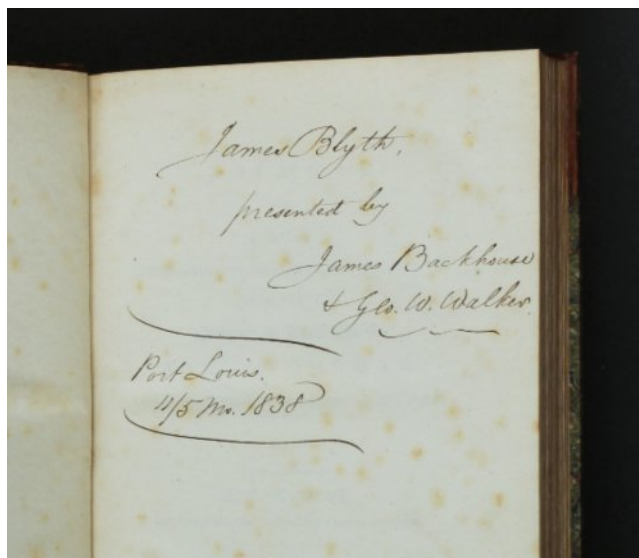 James Blyth,
presented by
James Backhouse
& Geo. W. Walker.
Port Louis.
4/5 Mo. 1838